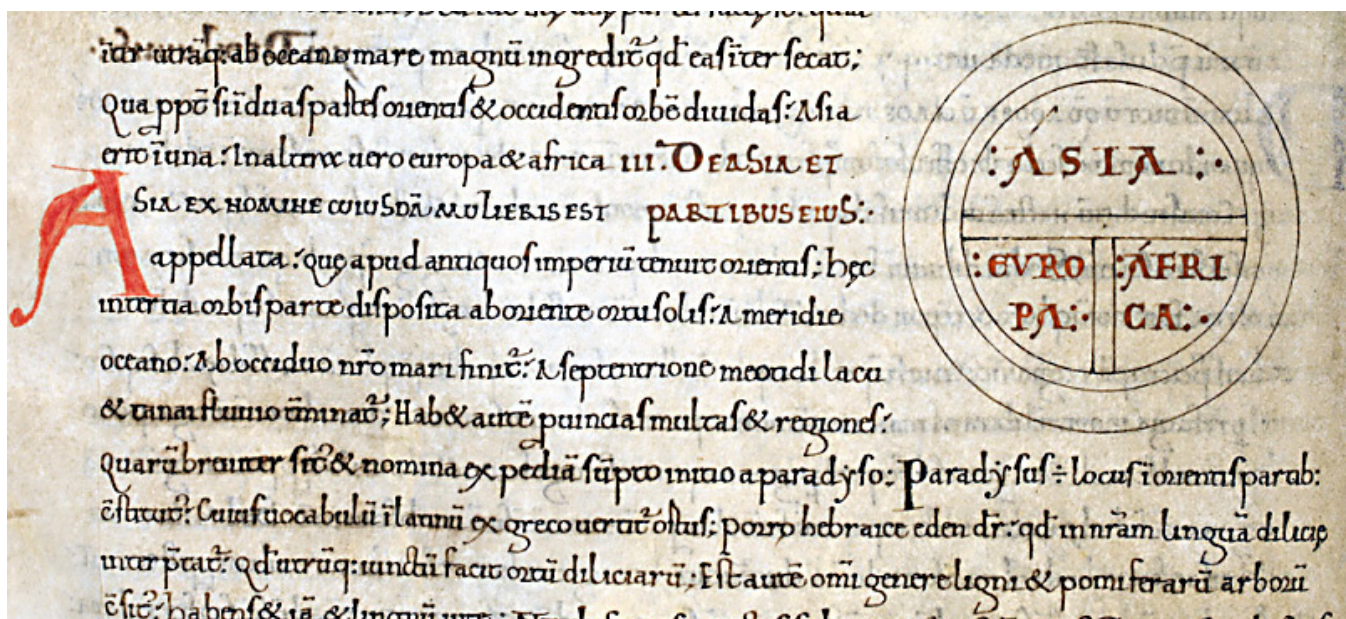 inter utraq: ab oceano mare magnū ingredit̄ qd̄ eas īter secat;
Qua ppt̄ si ī duas partes orientis & occidentis orbē diuidas: Asia
erit ī una: In altera uero europa & africa III. DE ASIA ET
ASIA EX NOMINE CUIUSDĀ MULIERIS EST PARTIBUS EIUS:
appellata: quę apud antiquos imperiū tenuit orientis; hęc
in tertia orbis parte disposita ab oriente ortu solis: A meridie
oceano: Ab occiduo nr̄o mari finit̄: A septentrione meotidi lacu
& tanai fluuio t̄minat̄; Hab& autē puincias multas & regiones:
Quarū breuiter sit̄ & nomina expediā sūpto initio a paradyso: Paradysus ÷ locus ī orientis partib:
c̄stitut̄: Cuius uocabulū ī latinū ex greco uertit̄ ortus; porro hebraice eden dr̄: qd̄ in nr̄am linguā dilicię
inter p̄tat̄: qd̄ utrūq: iunctū facit ortū diliciarū; Est autē omī genere ligni & pomiferarū arborū
c̄sit̄: habens & iā & lignū uite:
: ASIA :
: EVRO
PA:
: AFRI
CA: